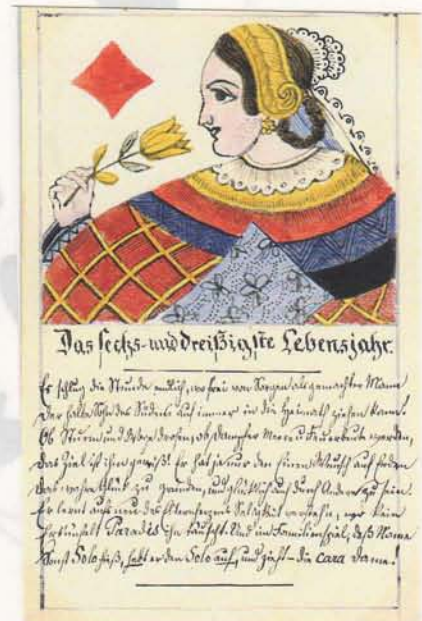 Das sechs- und dreißigste Lebensjahr.
Es schlug die Stunde endlich, wo frei von Sorgen als gemachter Mann
Der Sohn des Südens auf immer in die Heimath ziehen kann!
Ob Sturm und drohen, ob Dampfer Meere u Feuerbeute werden,
Das Ziel ist ihm gewiß! Er hat ja nur den Einen Wunsch auf Erden
Das wahre Glück zu gründen, und glücklich auch durch Andere zu sein.
Er lernt aufs neu des Elternherzens Seligkeit verstehn, wo kein
Erkünstelt Paradis ihn täuscht. Und im Familienspiel, deß Name
Sonst Solo hieß, hebt er den Solo auf, und zieht – die cara Dame!